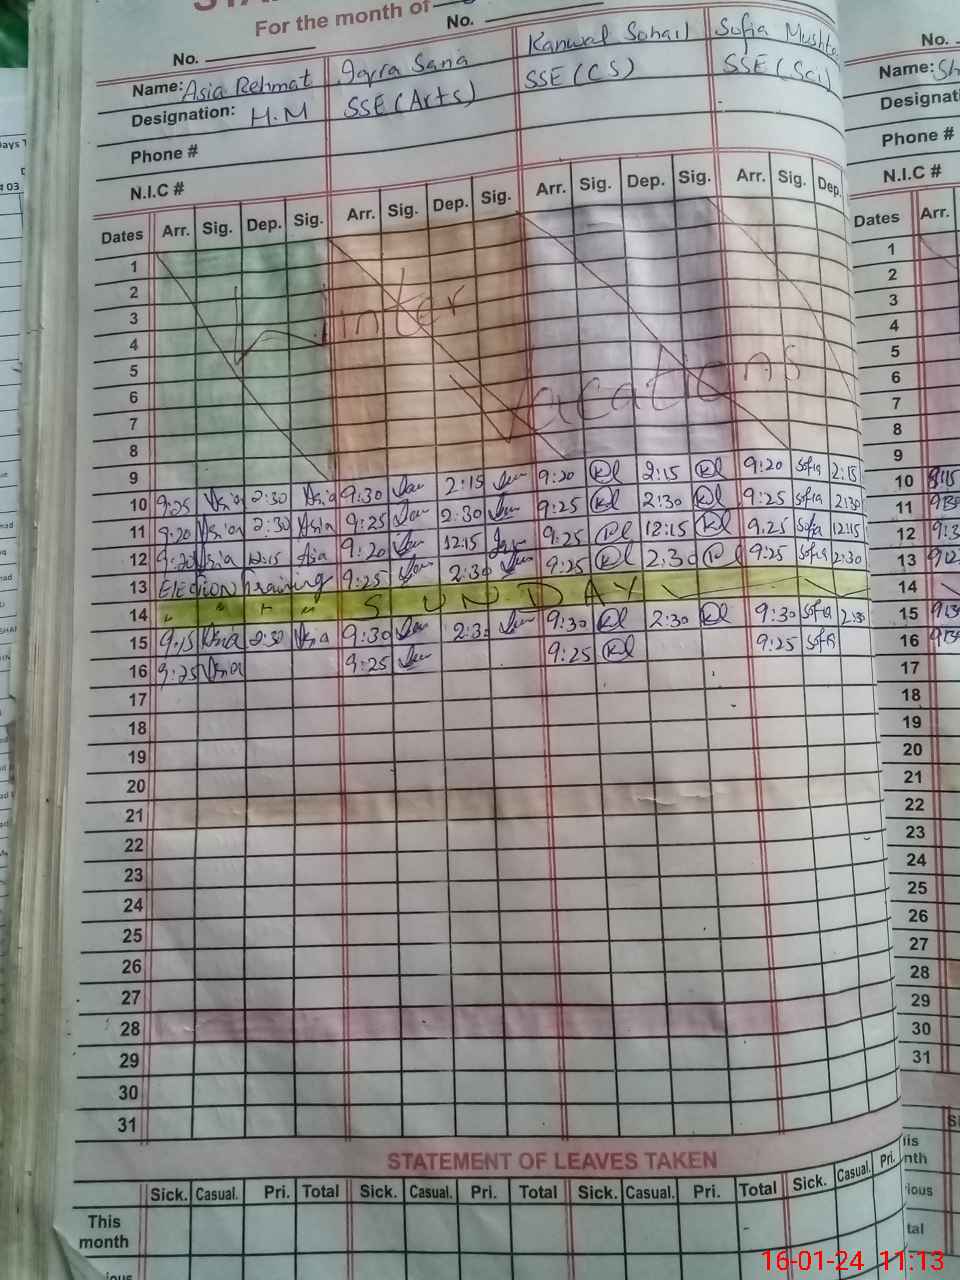 For the month of
No. No. No.
Name: Asia Rehmat Iqra Sana Kanwal Sohail Sofia Name:
Designation: H.M SSE (Arts) SSE (CS) SSE (Sci)
Phone # Phone #
N.I.C # N.I.C #
Dates Arr. Sig. Dep. Sig. Arr. Sig. Dep. Sig. Arr. Sig. Dep. Sig. Arr. Sig. Dep. Dates Arr.
1 1
2 2
3 Winter 3
4 4
5 Vacations 5
6 6
7 7
8 8
9 9
10 9:25 Asia 2:30 Asia 9:30 2:15 9:20 2:15 9:20 Sofia 2:15 10
11 9:20 Asia 2:30 Asia 9:25 2:30 9:25 2:30 9:25 Sofia 2:30 11
12 9:20 Asia 12:15 Asia 9:20 12:15 9:25 12:15 9:25 Sofia 12:15 12
13 Election training 9:25 2:30 9:25 2:30 9:25 Sofia 2:30 13
14 " " " " SUNDAY 14
15 9:15 Asia 2:30 Asia 9:30 2:30 9:30 2:30 9:30 Sofia 2:30 15
16 9:25 Asia 9:25 9:25 9:25 Sofia 16
17 17
18 18
19 19
20 20
21 21
22 22
23 23
24 24
25 25
26 26
27 27
28 28
29 29
30 30
31 31
STATEMENT OF LEAVES TAKEN
Sick. Casual. Pri. Total Sick. Casual. Pri. Total Sick. Casual. Pri. Total Sick. Casual. Pri.
This month
16-01-24 11:13